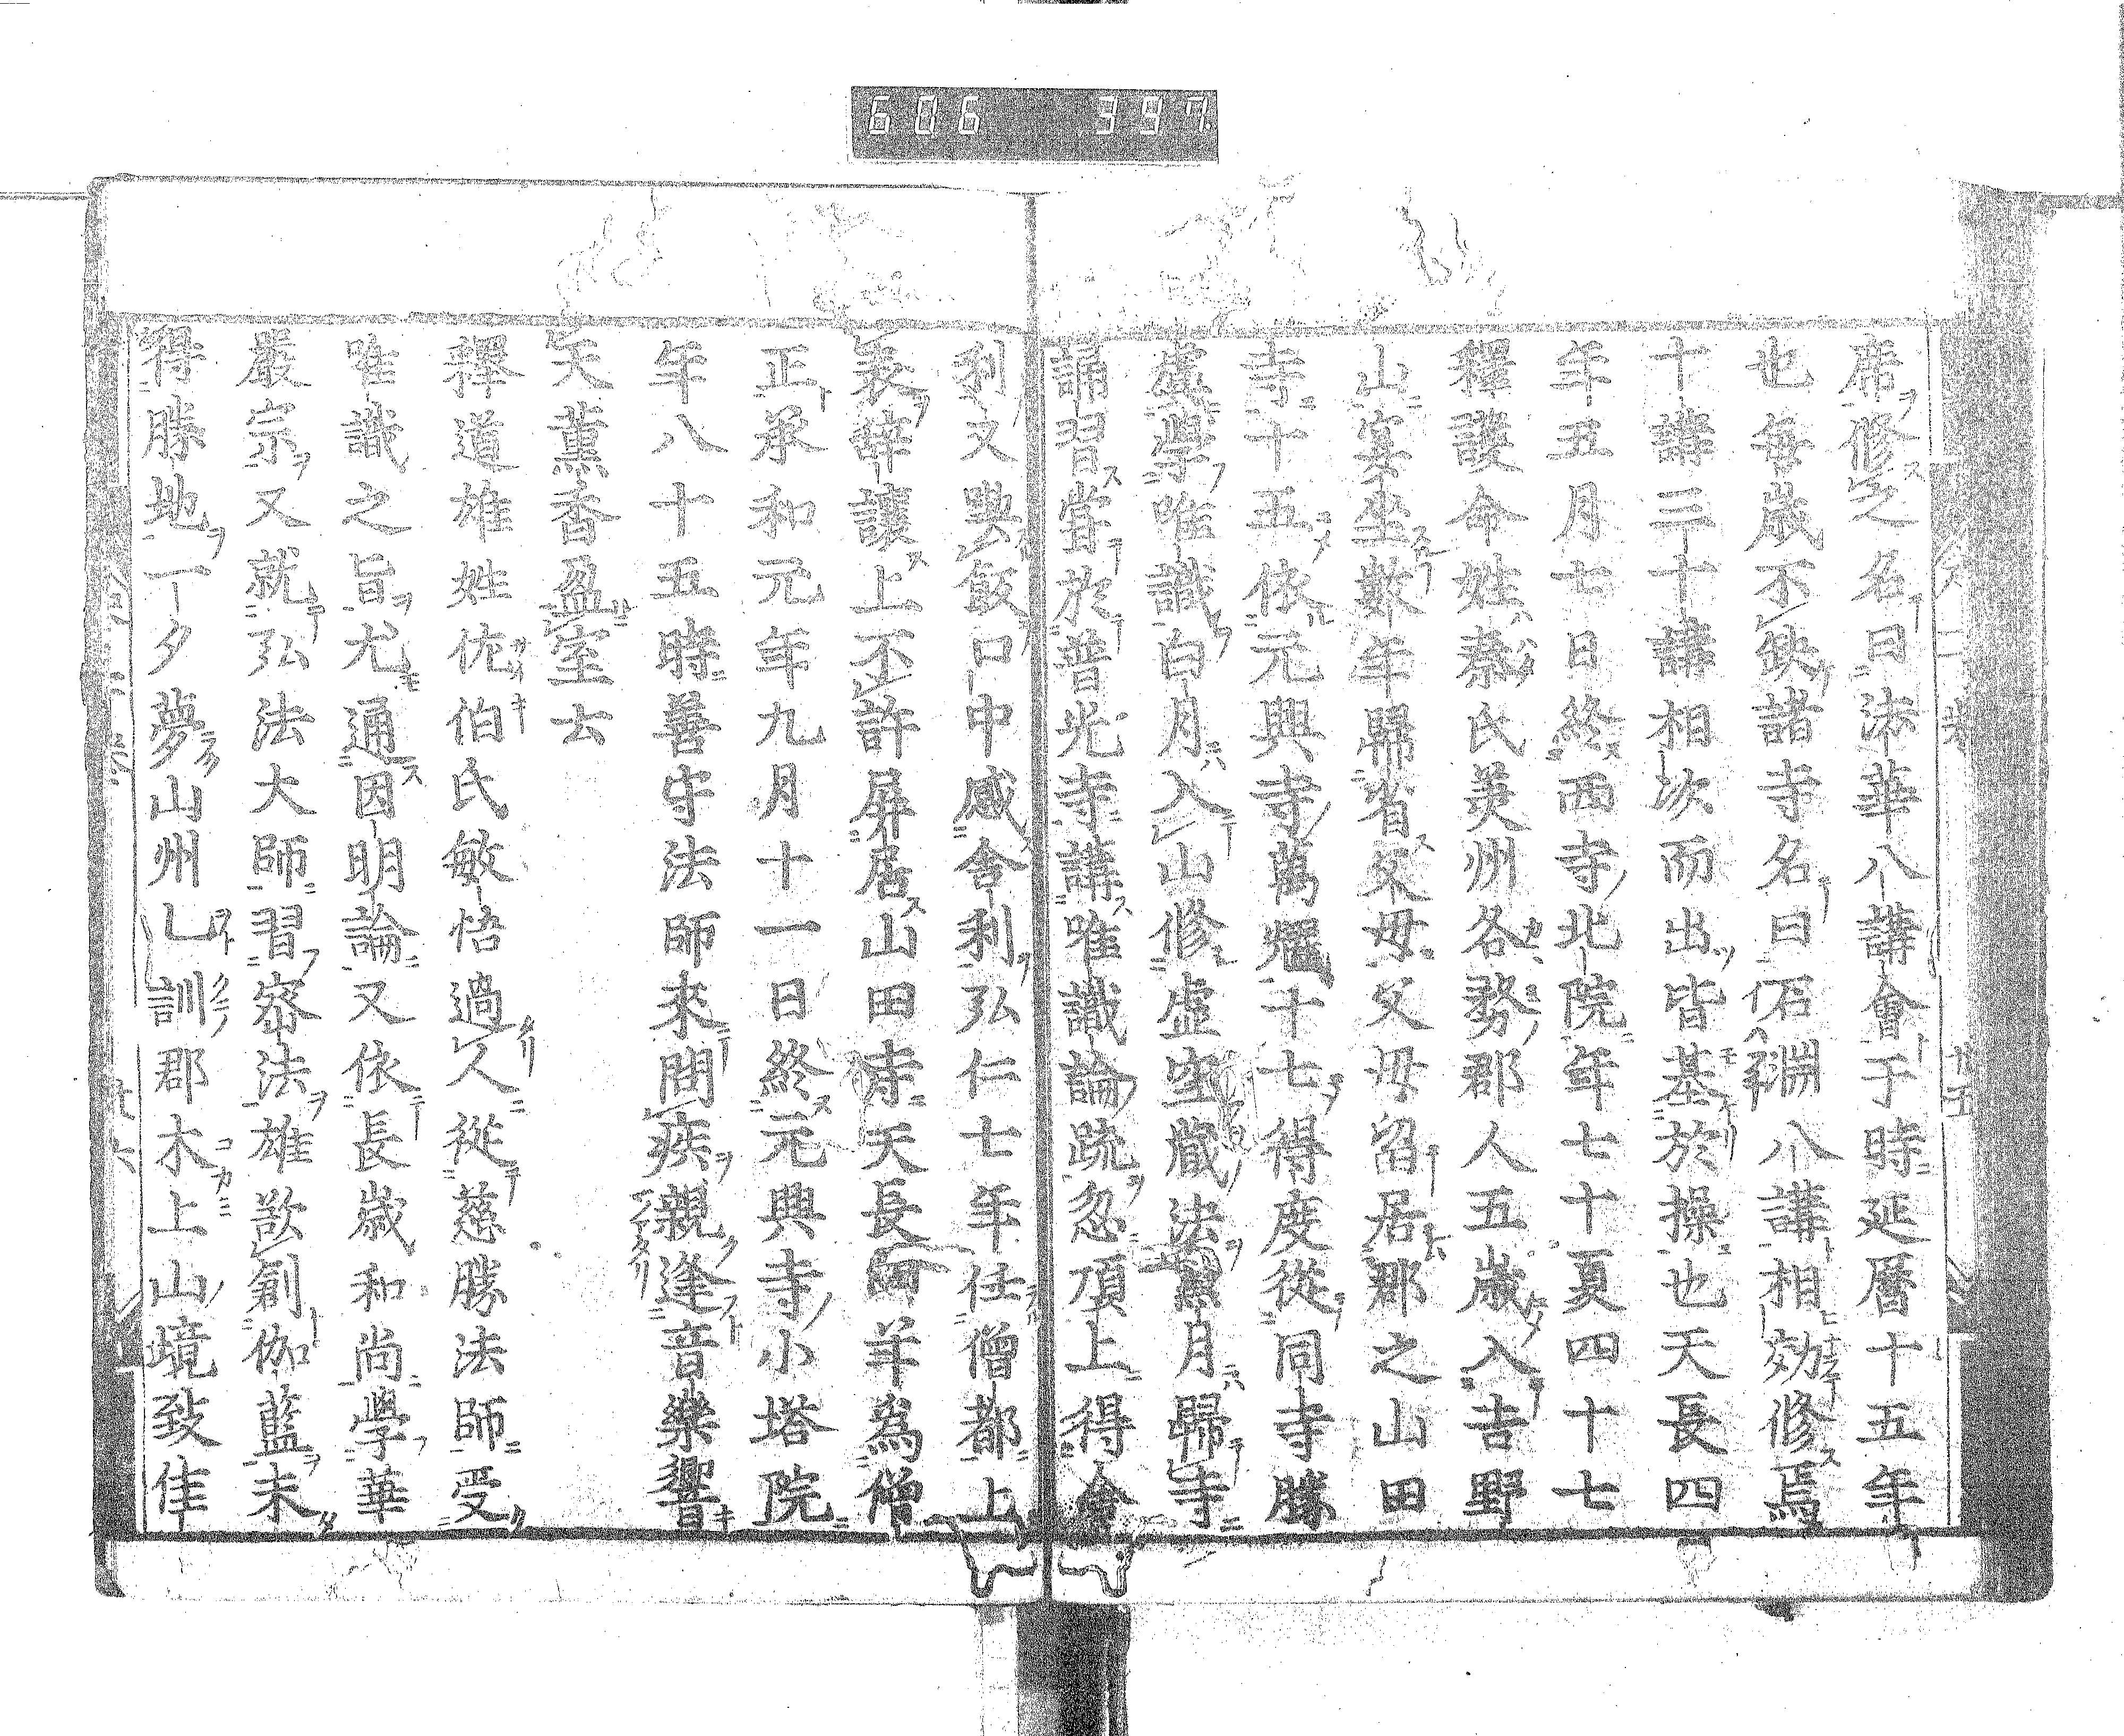 606 397
席修之名曰法華八講會于時延曆十五年
也每歳不缺諸寺名曰石淵八講相効修焉
十講三十講相次而出皆基於操也天長四
年五月七日終西寺北院年七十夏四十七
釋護命姓秦氏美州各務郡人五歲入吉野
山宴坐數年歸省父母父母留居郡之山田
寺十五依元興寺萬燿十七得度從同寺勝
虛學唯識白月入山修虛空藏法黑月歸寺
誦習嘗於普光寺講唯識論疏忽頂上得舍
利又與飯口中感舍利弘仁七年任僧都上
表辭讓上不許屏居山田寺天長四年為僧
正承和元年九月十一日終元興寺小塔院
年八十五時善守法師來問疾親逢音樂響
天薰香盈室云
釋道雄姓佐伯氏敏悟過人從慈勝法師受
唯識之旨尤通因明論又依長歲和尚學華
嚴宗又就弘法大師習密法雄欲創伽藍未
得勝地一夕夢山州乚訓郡木上山境致佳